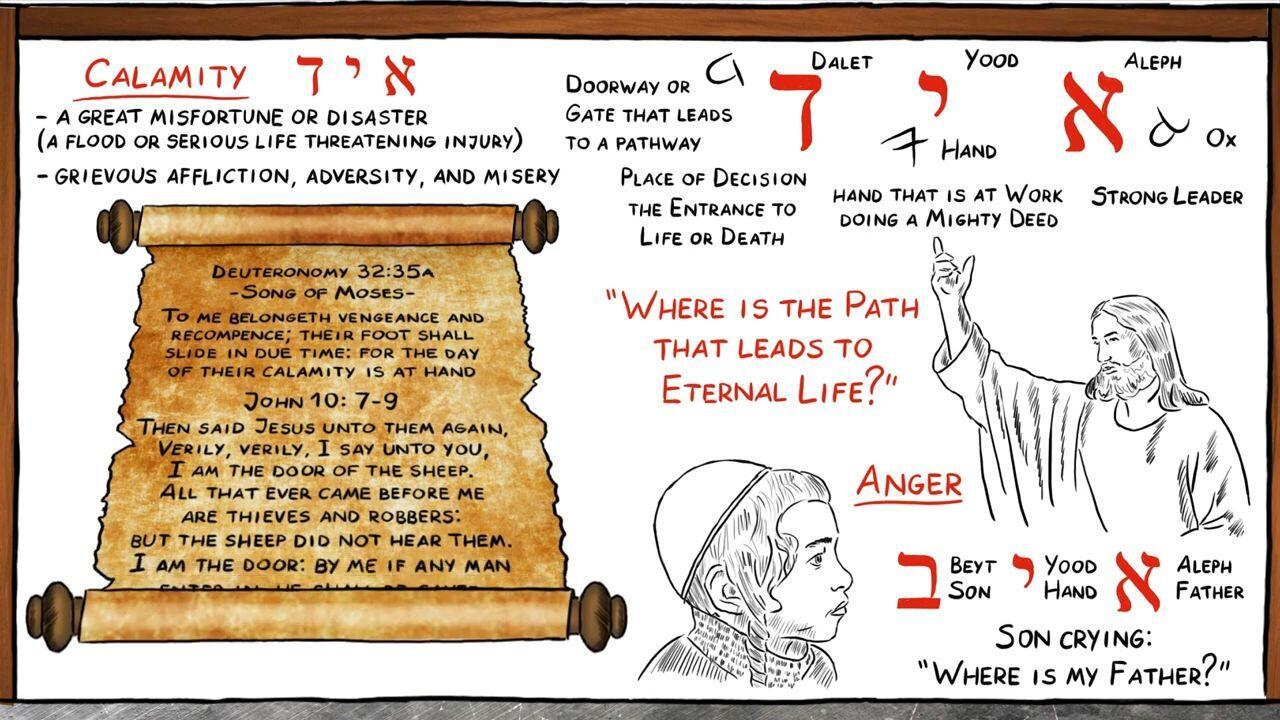 CALAMITY ד י א
- A GREAT MISFORTUNE OR DISASTER
(A FLOOD OR SERIOUS LIFE THREATENING INJURY)
- GRIEVOUS AFFLICTION, ADVERSITY, AND MISERY
DEUTERONOMY 32:35A
-SONG OF MOSES-
TO ME BELONGETH VENGEANCE AND
RECOMPENCE; THEIR FOOT SHALL
SLIDE IN DUE TIME: FOR THE DAY
OF THEIR CALAMITY IS AT HAND
JOHN 10: 7-9
THEN SAID JESUS UNTO THEM AGAIN,
VERILY, VERILY, I SAY UNTO YOU,
I AM THE DOOR OF THE SHEEP.
ALL THAT EVER CAME BEFORE ME
ARE THIEVES AND ROBBERS:
BUT THE SHEEP DID NOT HEAR THEM.
I AM THE DOOR: BY ME IF ANY MAN
DALET
ד
DOORWAY OR
GATE THAT LEADS
TO A PATHWAY
PLACE OF DECISION
THE ENTRANCE TO
LIFE OR DEATH
YOOD
י
HAND
HAND THAT IS AT WORK
DOING A MIGHTY DEED
ALEPH
א
OX
STRONG LEADER
"WHERE IS THE PATH
THAT LEADS TO
ETERNAL LIFE?"
ANGER
ב BEYT
SON
י YOOD
HAND
א ALEPH
FATHER
SON CRYING:
"WHERE IS MY FATHER?"